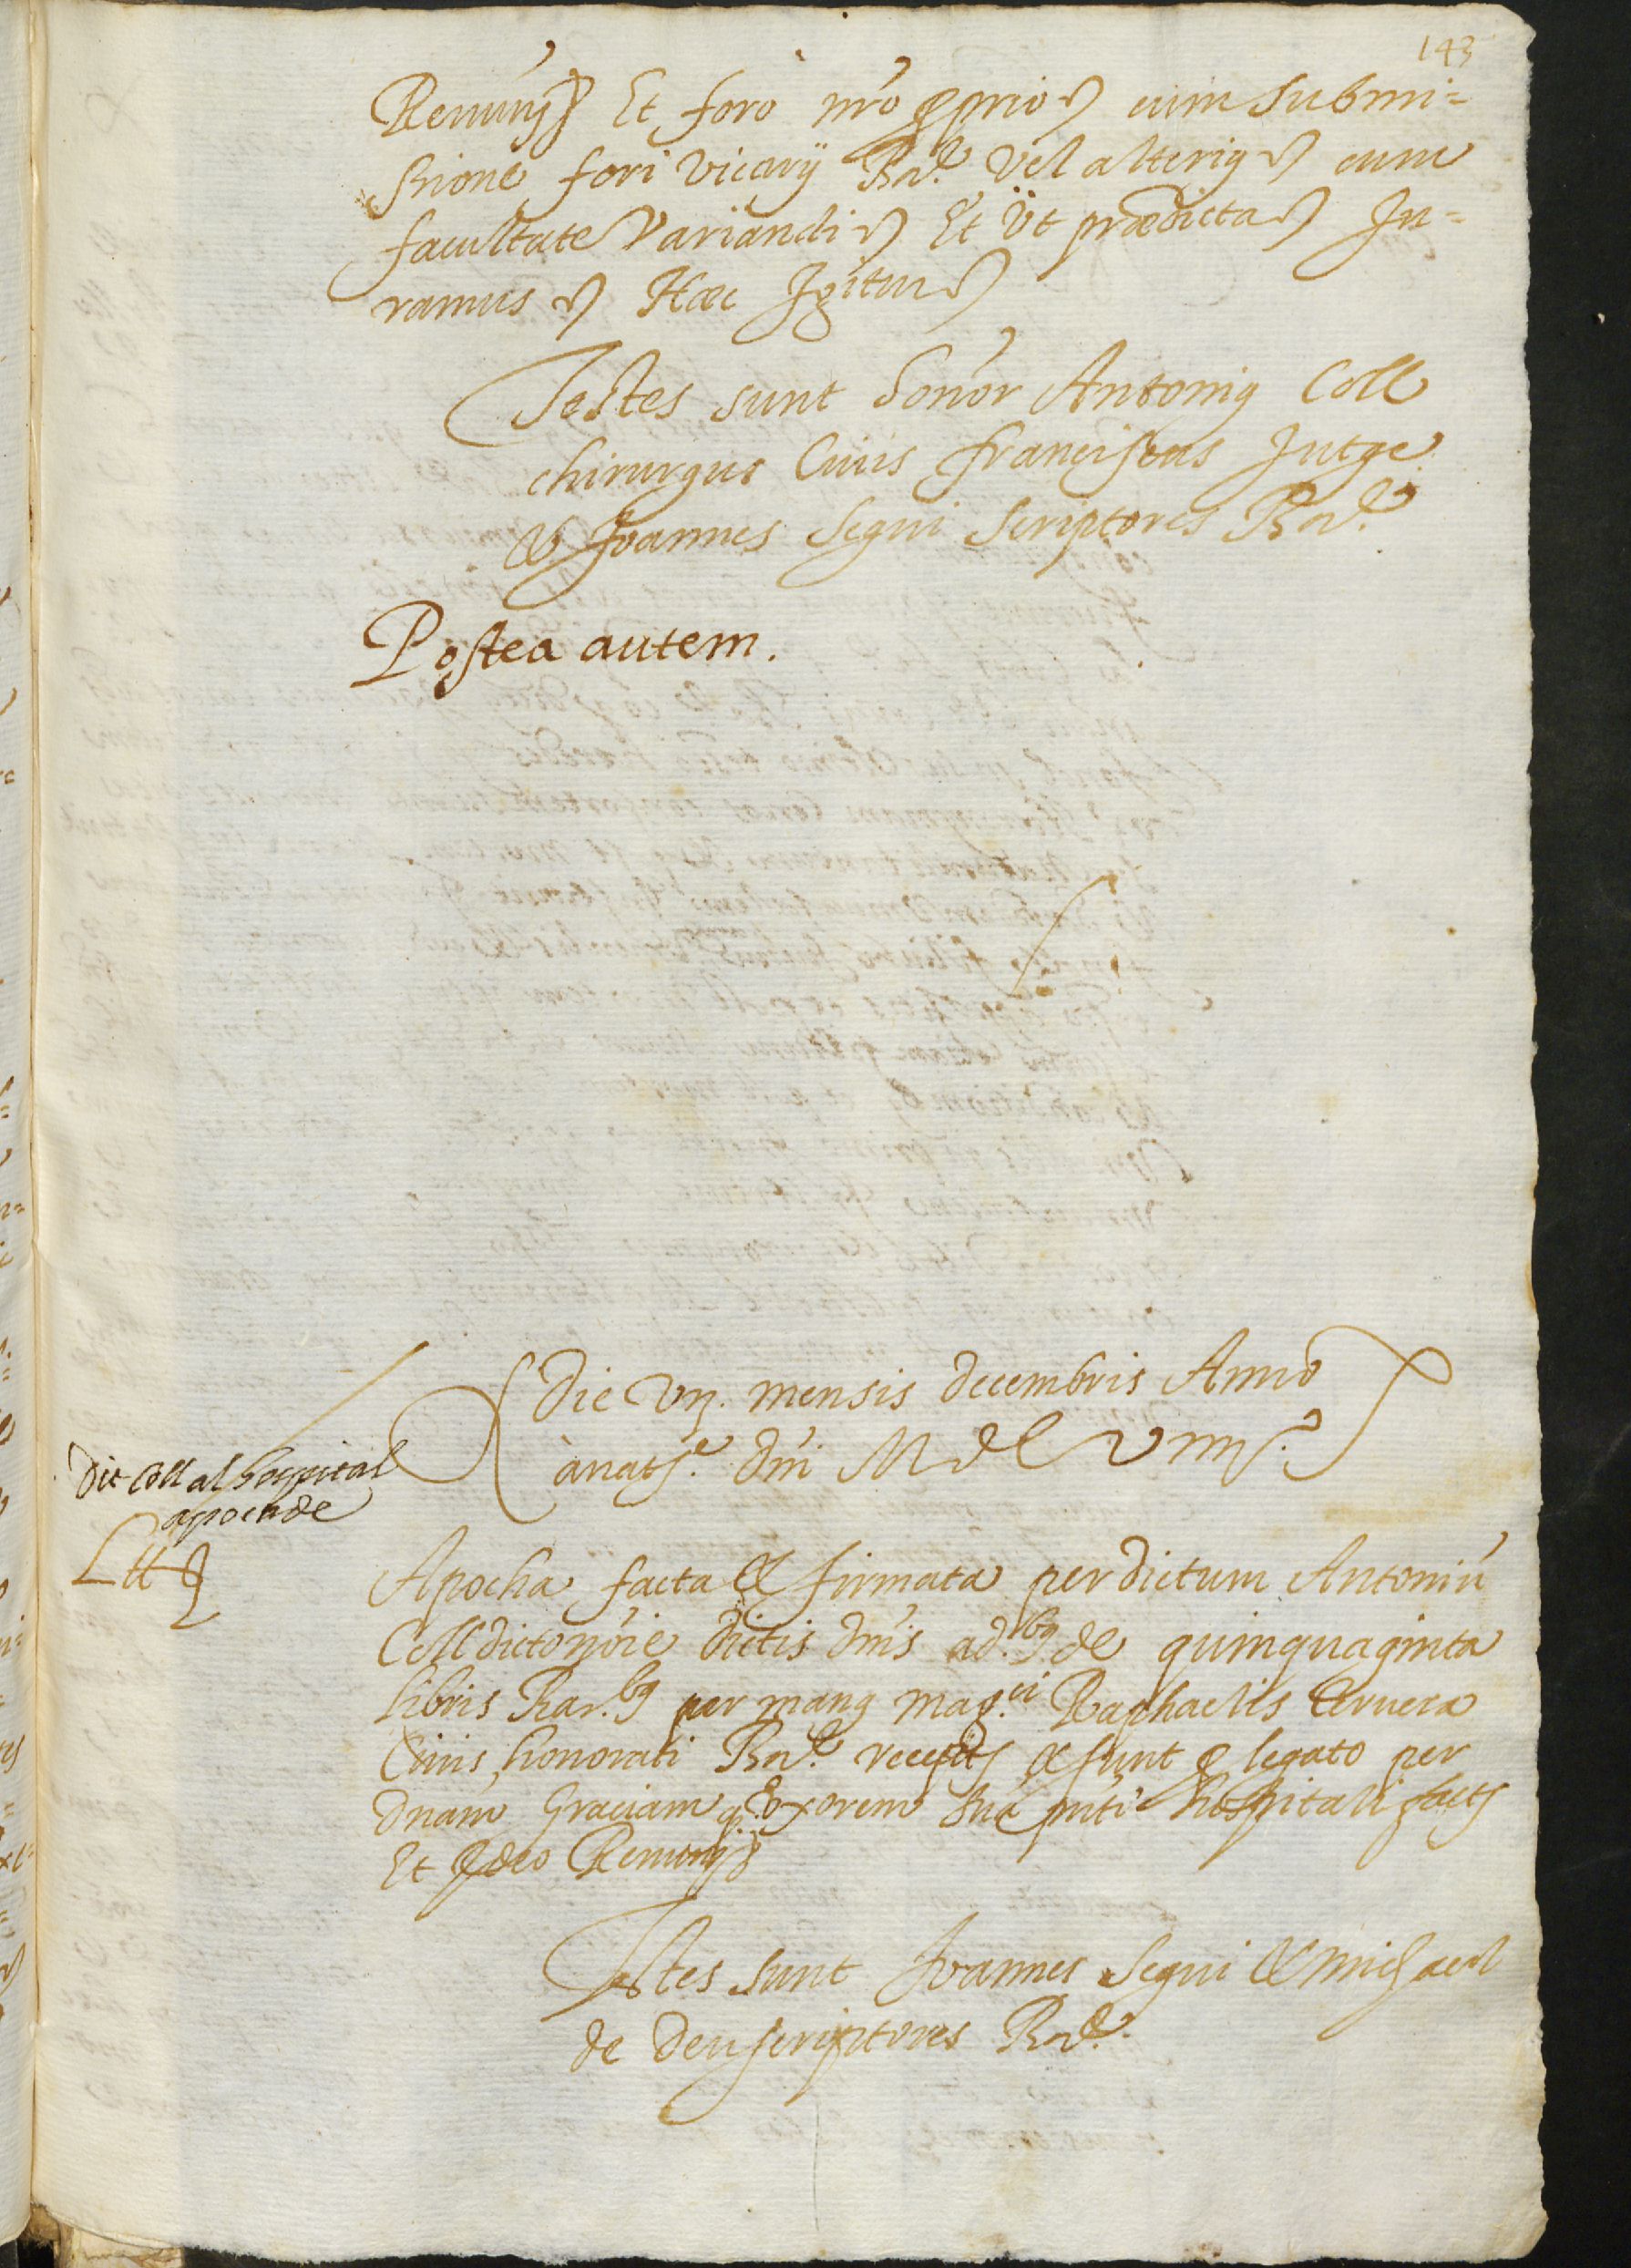 143
Renun.s Et foro nr̃o proprio &c cum submi=
ssione fori vicarij Bar.e vel alterius &c cum
facultate variandi &c Et ut prædicta &c Ju=
ramus &c Hæc Igitur &c
Testes sunt honor Antonius Coll
chirurgus Civis franciscus Jutge
& Joannes Segui Scriptores Bar.e
Postea autem.
Die mensis decembris Anno
à nat.e Dñi M D L viiij.
Dit Coll al hospital
apocha de
Apocha facta & firmata per dictum Antoniũ
Coll dicto nõie dictis dñis ad.bus de quinquaginta
libris Bar.bus per manus mag.ci Raphaelis Cervera
Civis honorati Bar.e receptis & sunt pro legato per
dnam Graciam q. Uxorem suã pñti hospitali factis
Et Ideo Renun.s
Testes sunt Joannes Segui & michael
de Deu scriptores Bar.e